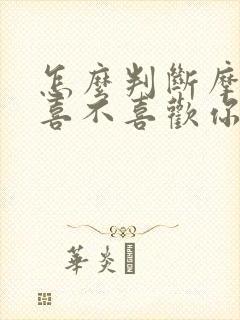 怎麼判斷摩
喜不喜歡你
華炎